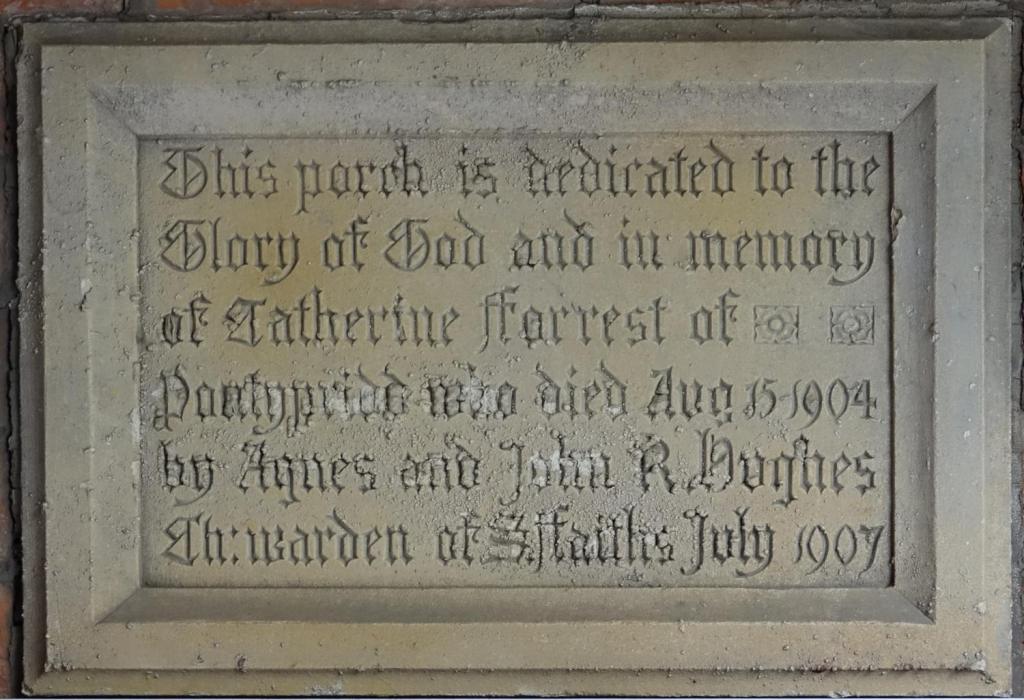 This porch is dedicated to the
Glory of God and in memory
of Catherine Fforrest of
Pontypridd who died Aug 15-1904
by Agnes and John R. Hughes
Ch:warden of S. ffaiths July 1907